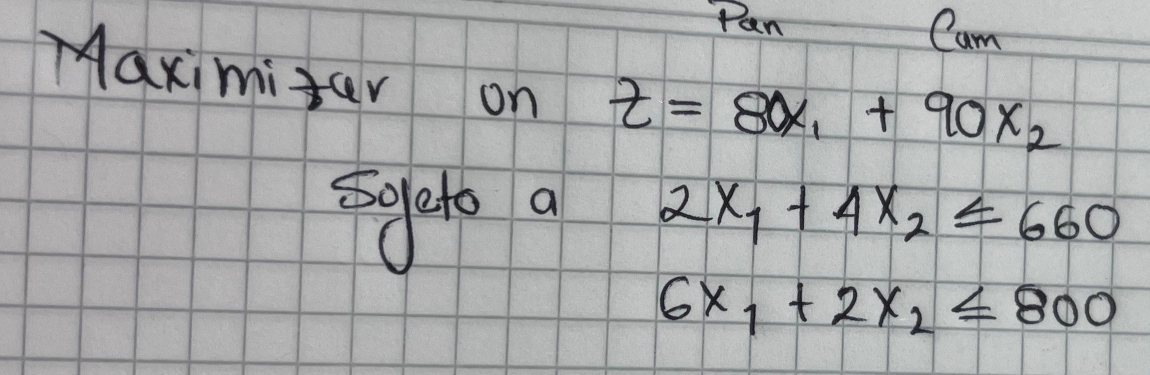 Pan Cam
Maximizar on z = 80x₁ + 90x₂
Sojeto a 2x₁ + 4x₂ ≤ 660
6x₁ + 2x₂ ≤ 800